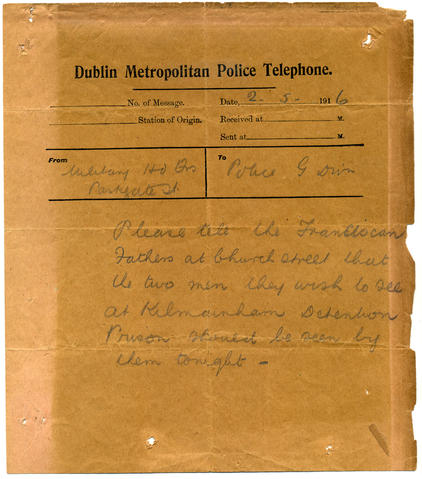 Dublin Metropolitan Police Telephone.
No. of Message. Date, 2 - 5 - 1916
Station of Origin. Received at M.
Sent at M.
From To
Military Hd Qrs Police G Divn
Parkgate St
Please tell the Franciscan
Fathers at Church street that
the two men they wish to see
at Kilmainham Detention
Prison should be seen by
them tonight -